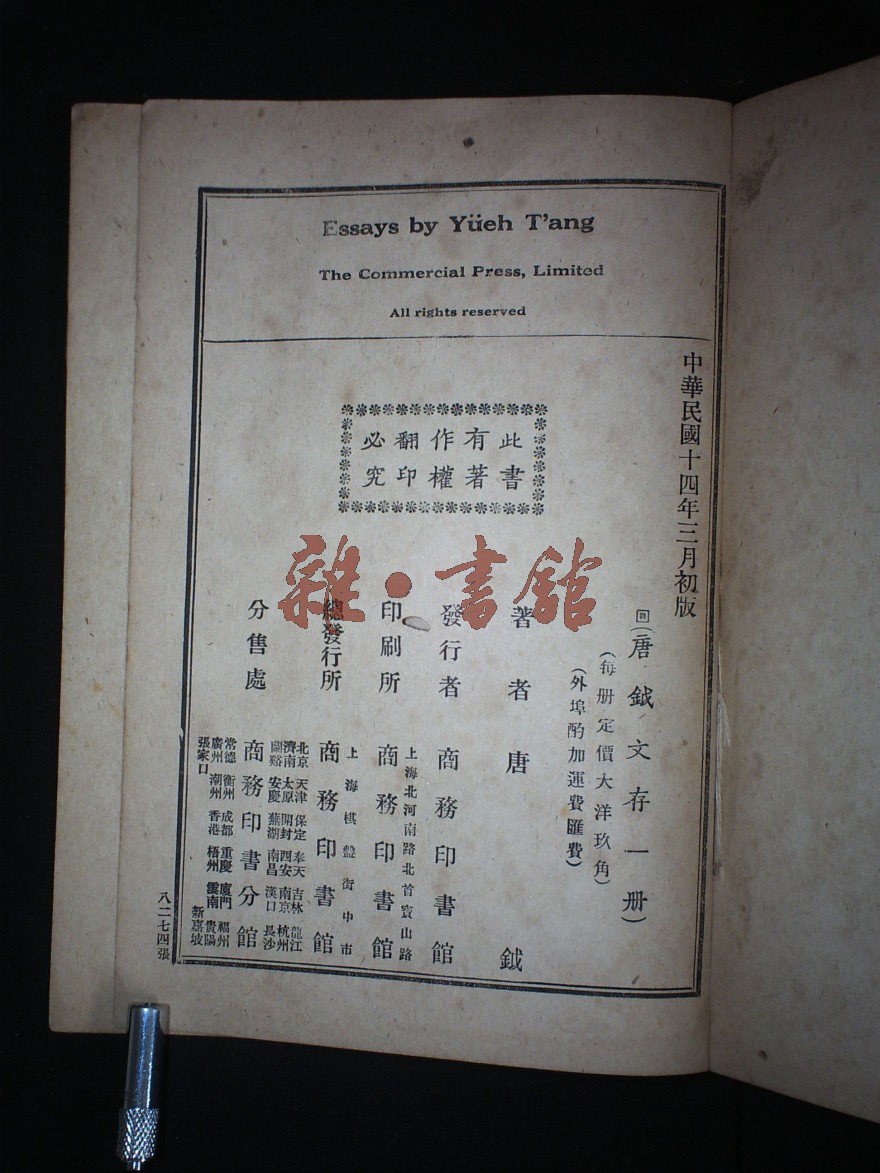 Essays by Yüeh T'ang
The Commercial Press, Limited
All rights reserved
中華民國十四年三月初版
此書
有著
作權
翻印
必究
回(唐鉞文存一册)
(每册定價大洋玖角)
(外埠酌加運費匯費)
著者 唐鉞
發行者 商務印書館
上海北河南路北首寶山路
印刷所 商務印書館
上海棋盤街中市
總發行所 商務印書館
北京 天津 保定 奉天 吉林 龍江
濟南 太原 開封 西安 南京 杭州
蘭谿 安慶 蕪湖 南昌 漢口 長沙
分售處 商務印書分館
常德 衡州 成都 重慶 廈門 福州
廣州 潮州 香港 梧州 雲南 貴陽
張家口 新嘉坡
八二七四張
雜·書館